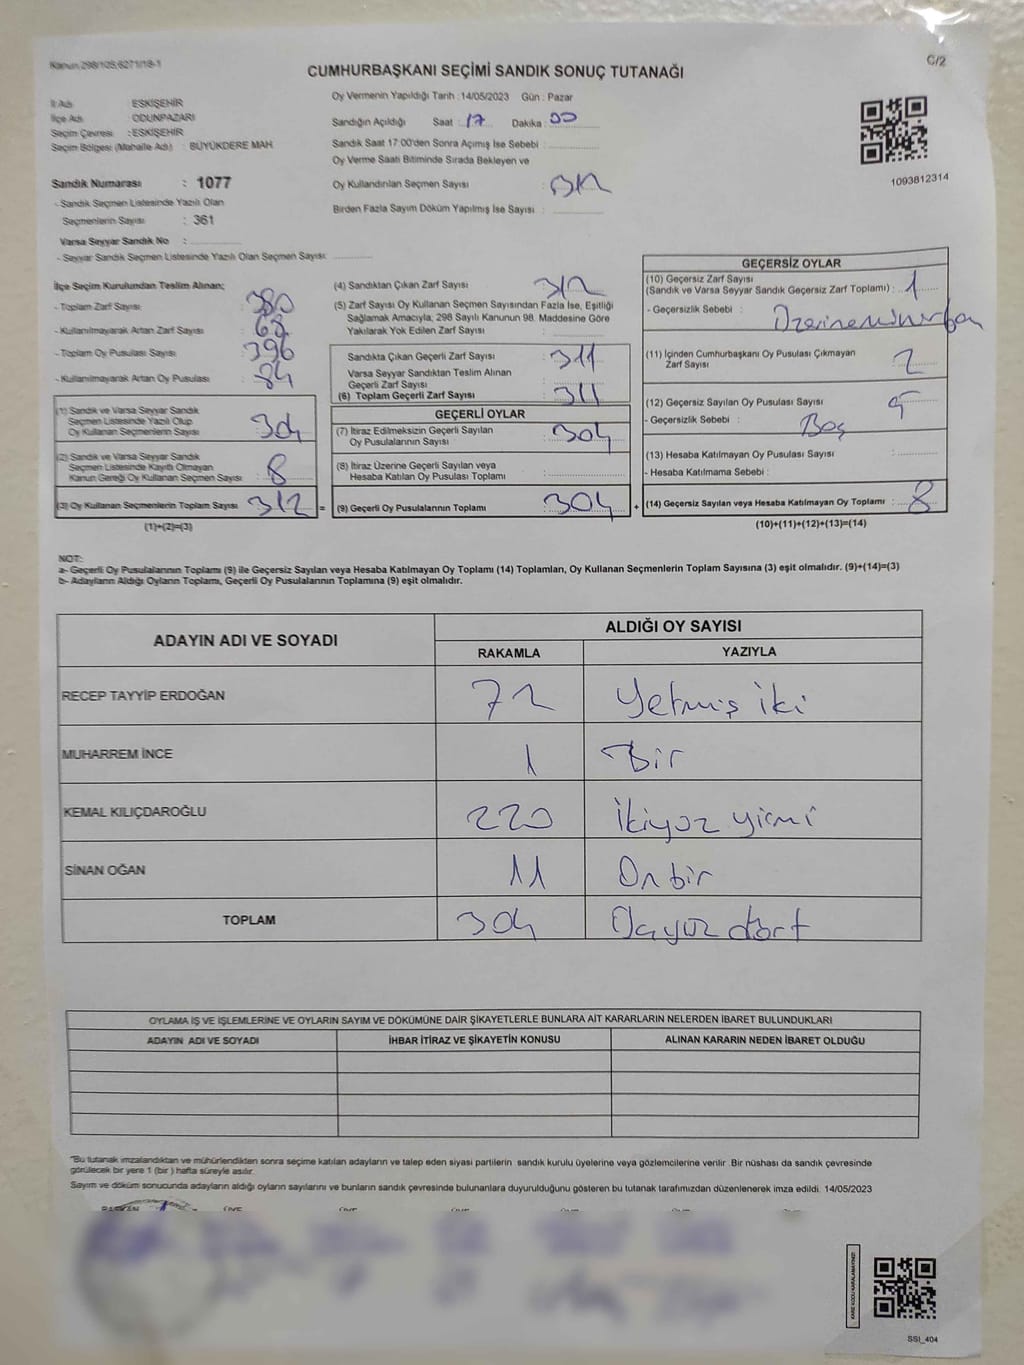 Kanun 298/105,6271/18-1
C/2
CUMHURBAŞKANI SEÇİMİ SANDIK SONUÇ TUTANAĞI
İl Adı ESKİŞEHİR
İlçe Adı ODUNPAZARI
Seçim Çevresi : ESKİŞEHİR
Seçim Bölgesi (Mahalle Adı) : BÜYÜKDERE MAH
Sandık Numarası : 1077
- Sandık Seçmen Listesinde Yazılı Olan
Seçmenlerin Sayısı : 361
Varsa Seyyar Sandık No :
- Seyyar Sandık Seçmen Listesinde Yazılı Olan Seçmen Sayısı:
Oy Vermenin Yapıldığı Tarih : 14/05/2023 Gün : Pazar
Sandığın Açıldığı Saat : 17 Dakika : 00
Sandık Saat 17:00'den Sonra Açımış İse Sebebi :
Oy Verme Saati Bitiminde Sırada Bekleyen ve
Oy Kullandırılan Seçmen Sayısı : 312
Birden Fazla Sayım Döküm Yapılmış İse Sayısı :
1093812314
İlçe Seçim Kurulundan Teslim Alınan;
- Toplam Zarf Sayısı : 380
- Kullanılmayarak Artan Zarf Sayısı : 68
- Toplam Oy Pusulası Sayısı : 396
- Kullanılmayarak Artan Oy Pusulası : 84
(1) Sandık ve Varsa Seyyar Sandık
Seçmen Listesinde Yazılı Olup
Oy Kullanan Seçmenlerin Sayısı : 304
(2) Sandık ve Varsa Seyyar Sandık
Seçmen Listesinde Kayıtlı Olmayan
Kanun Gereği Oy Kullanan Seçmen Sayısı : 8
(3) Oy Kullanan Seçmenlerin Toplam Sayısı : 312 =
(1)+(2)=(3)
(4) Sandıktan Çıkan Zarf Sayısı : 312
(5) Zarf Sayısı Oy Kullanan Seçmen Sayısından Fazla İse, Eşitliği
Sağlamak Amacıyla; 298 Sayılı Kanunun 98. Maddesine Göre
Yakılarak Yok Edilen Zarf Sayısı :
Sandıkta Çıkan Geçerli Zarf Sayısı : 311
Varsa Seyyar Sandıktan Teslim Alınan
Geçerli Zarf Sayısı :
(6) Toplam Geçerli Zarf Sayısı : 311
GEÇERLİ OYLAR
(7) İtiraz Edilmeksizin Geçerli Sayılan
Oy Pusulalarının Sayısı : 304
(8) İtiraz Üzerine Geçerli Sayılan veya
Hesaba Katılan Oy Pusulası Toplamı :
(9) Geçerli Oy Pusulalarının Toplamı : 304 +
GEÇERSİZ OYLAR
(10) Geçersiz Zarf Sayısı
(Sandık ve Varsa Seyyar Sandık Geçersiz Zarf Toplamı) : 1
- Geçersizlik Sebebi :
(11) İçinden Cumhurbaşkanı Oy Pusulası Çıkmayan
Zarf Sayısı : 2
(12) Geçersiz Sayılan Oy Pusulası Sayısı : 5
- Geçersizlik Sebebi : Boş
(13) Hesaba Katılmayan Oy Pusulası Sayısı :
- Hesaba Katılmama Sebebi :
(14) Geçersiz Sayılan veya Hesaba Katılmayan Oy Toplamı : 8
(10)+(11)+(12)+(13)=(14)
NOT:
a- Geçerli Oy Pusulalarının Toplamı (9) ile Geçersiz Sayılan veya Hesaba Katılmayan Oy Toplamı (14) Toplamları, Oy Kullanan Seçmenlerin Toplam Sayısına (3) eşit olmalıdır. (9)+(14)=(3)
b- Adayların Aldığı Oyların Toplamı, Geçerli Oy Pusulalarının Toplamına (9) eşit olmalıdır.
ADAYIN ADI VE SOYADI
ALDIĞI OY SAYISI
RAKAMLA YAZIYLA
RECEP TAYYİP ERDOĞAN 72 Yetmiş iki
MUHARREM İNCE 1 Bir
KEMAL KILIÇDAROĞLU 220 İkiyüz yirmi
SİNAN OĞAN 11 On bir
TOPLAM 304 Üçyüz dört
OYLAMA İŞ VE İŞLEMLERİNE VE OYLARIN SAYIM VE DÖKÜMÜNE DAİR ŞİKAYETLERLE BUNLARA AİT KARARLARIN NELERDEN İBARET BULUNDUKLARI
ADAYIN ADI VE SOYADI İHBAR İTİRAZ VE ŞİKAYETİN KONUSU ALINAN KARARIN NEDEN İBARET OLDUĞU
"Bu tutanak imzalandıktan ve mühürlendikten sonra seçime katılan adayların ve talep eden siyasi partilerin sandık kurulu üyelerine veya gözlemcilerine verilir. Bir nüshası da sandık çevresinde
görülecek bir yere 1 (bir) hafta süreyle asılır.
Sayım ve döküm sonucunda adayların aldığı oyların sayılarını ve bunların sandık çevresinde bulunanlara duyurulduğunu gösteren bu tutanak tarafımızdan düzenlenerek imza edildi. 14/05/2023
SSI_404